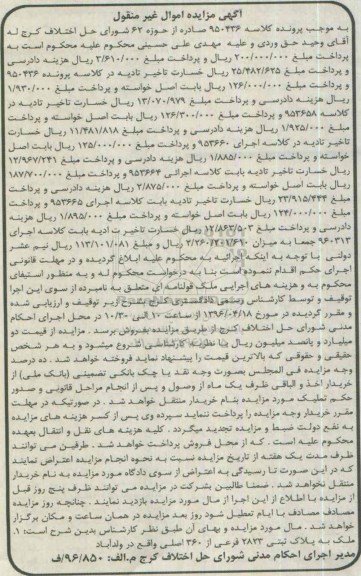 آگهی مزایده اموال غیر منقول
به موجب پرونده کلاسه ۹۵۰۴۳۶ صادره از حوزه ۶۲ شورای حل اختلاف کرج له
آقای وحید حق وردی و علیه مهدی علی حسینی محکوم علیه محکوم است به
پرداخت مبلغ ۲۰۰/۰۰۰/۰۰۰ ریال و پرداخت مبلغ ۳/۶۱۰/۰۰۰ ریال هزینه دادرسی
و پرداخت مبلغ ۲۵/۴۸۲/۶۳۵ ریال خسارت تاخیر تادیه در کلاسه پرونده ۹۵۰۴۳۶
و پرداخت مبلغ ۱۲۶/۰۰۰/۰۰۰ ریال بابت اصل خواسته و پرداخت مبلغ ۱/۹۳۰/۰۰۰
ریال هزینه دادرسی و پرداخت مبلغ ۱۳/۰۷۰/۹۷۹ ریال خسارت تاخیر تادیه در
کلاسه ۹۵۳۶۵۸ و پرداخت مبلغ ۱۲۶/۳۰۰/۰۰۰ ریال بابت اصل خواسته و پرداخت
مبلغ ۱/۹۲۵/۰۰۰ ریال هزینه دادرسی و پرداخت مبلغ ۱۱/۴۸۱/۸۱۸ ریال خسارت
تاخیر تادیه در کلاسه اجرای ۹۵۳۶۶۰ و پرداخت مبلغ ۱۲۵/۰۰۰/۰۰۰ ریال بابت اصل
خواسته و پرداخت مبلغ ۱/۸۸۵/۰۰۰ ریال هزینه دادرسی و پرداخت مبلغ ۱۲/۹۶۷/۲۴۱
ریال خسارت تاخیر تادیه بابت کلاسه اجرائی ۹۵۳۶۶۴ و پرداخت مبلغ ۱۸۷/۷۰۰/۰۰۰
ریال بابت اصل خواسته و پرداخت مبلغ ۲/۸۷۵/۰۰۰ ریال هزینه دادرسی و پرداخت
مبلغ ۲۳/۹۱۵/۴۴۴ ریال خسارت تاخیر تادیه بابت کلاسه اجرای ۹۵۳۶۶۵ و پرداخت
مبلغ ۱۲۴/۰۰۰/۰۰۰ ریال بابت اصل خواسته و پرداخت مبلغ ۱/۸۹۵/۰۰۰ ریال هزینه
دادرسی و پرداخت مبلغ ۱۲/۸۶۳/۵۰۳ ریال خسارت تاخیر تادیه بابت کلاسه اجرای
۹۶۰۳۱۳ جمعا به میزان ریال و مبلغ ۱۱۳/۱۰۱/۰۸۱ ریال نیم عشر
دولتی با توجه به اینکه اجرائیه به محکوم علیه ابلاغ گردیده و در مهلت قانونی
اجرای حکم اقدام ننموده است بنا به درخواست محکوم له و به منظور استیفای
محکوم به و هزینه های اجرایی ملک قولنامه ای متعلق به نامبرده از سوی این اجرا
توقیف و توسط کارشناس رسمی دادگستری کرج بشرح زیر توقیف و ارزیابی شده
و مقرر گردیده در مورخ ۱۳۹۶/۰۴/۱۸ از ساعت ۱۰ الی ۱۰/۳۰ در محل اجرای احکام
مدنی شورای حل اختلاف کرج از طریق مزایده بفروش برسد . مزایده از قیمت دو
میلیارد و پانصد میلیون ریال با نظریه کارشناسی شروع میشود و به هر شخص
حقیقی و حقوقی که بالاترین قیمت را پیشنهاد نماید فروخته خواهد شد . ده درصد
وجه مزایده فی المجلس بصورت وجه نقد یا چک بانکی تضمینی (بانک ملی) از
خریدار اخذ و الباقی ظرف یک ماه از وصول و پس از انجام مراحل قانونی و صدور
حکم تملیک مورد مزایده بنام خریدار منتقل خواهد شد . در صورتیکه در مهلت
مقرر خریدار وجه مزایده را پرداخت ننماید سپرده وی پس از کسر هزینه های مزایده
به نفع دولت ضبط و مزایده تجدید میگردد . کلیه هزینه های نقل و انتقال بعهده
محکوم علیه است . که از محل فروش پرداخت خواهد شد . طرفین می توانند
ظرف مدت یک هفته از تاریخ مزایده نسبت به نحوه انجام مزایده اعتراض نمایند
که در این صورت تا رسیدگی به اعتراض از سوی دادگاه مورد مزایده به نام خریدار
منتقل نخواهد شد . ضمنا طالبین بشرکت در مزایده می توانند ظرف پنج روز قبل
از مزایده با اطلاع از این اجرا از مال مورد مزایده بازدید نمایند . چنانچه روز مزایده
مصادف مصادف با ایام تعطیل شود روز بعد مزایده در همان ساعت و مکان برگزار
خواهد شد . مال مورد مزایده و بهای آن طبق نظر کارشناس بدین شرح است: ۱.
ملک به پلاک ثبتی ۲۸۲۳ فرعی از ۳۶۰ اصلی واقع در ولدآباد
مدیر اجرای احکام مدنی شورای حل اختلاف کرج م.الف: ۹۶/۸۵۰/ف